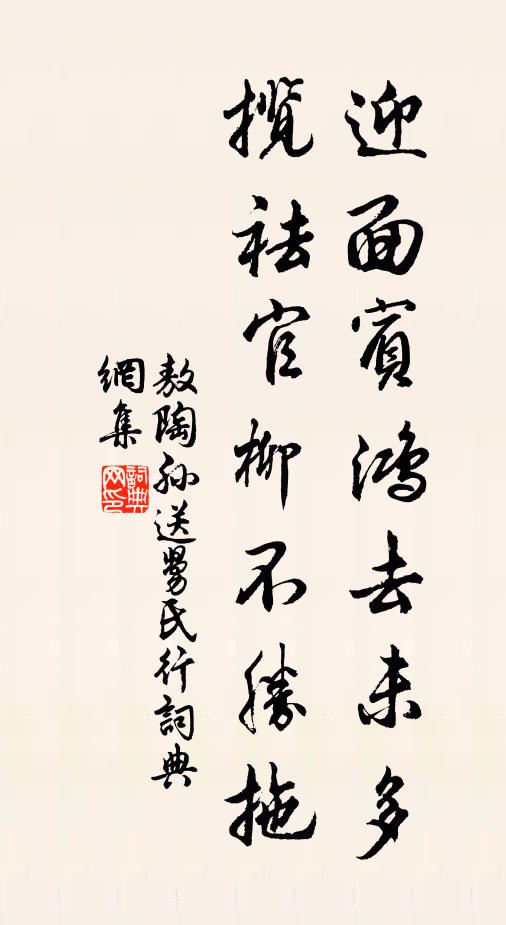 迎面賓鴻去未多
攬袪官柳不勝拖
敖陶孫送舅氏行詞典
網集
詞典
網印